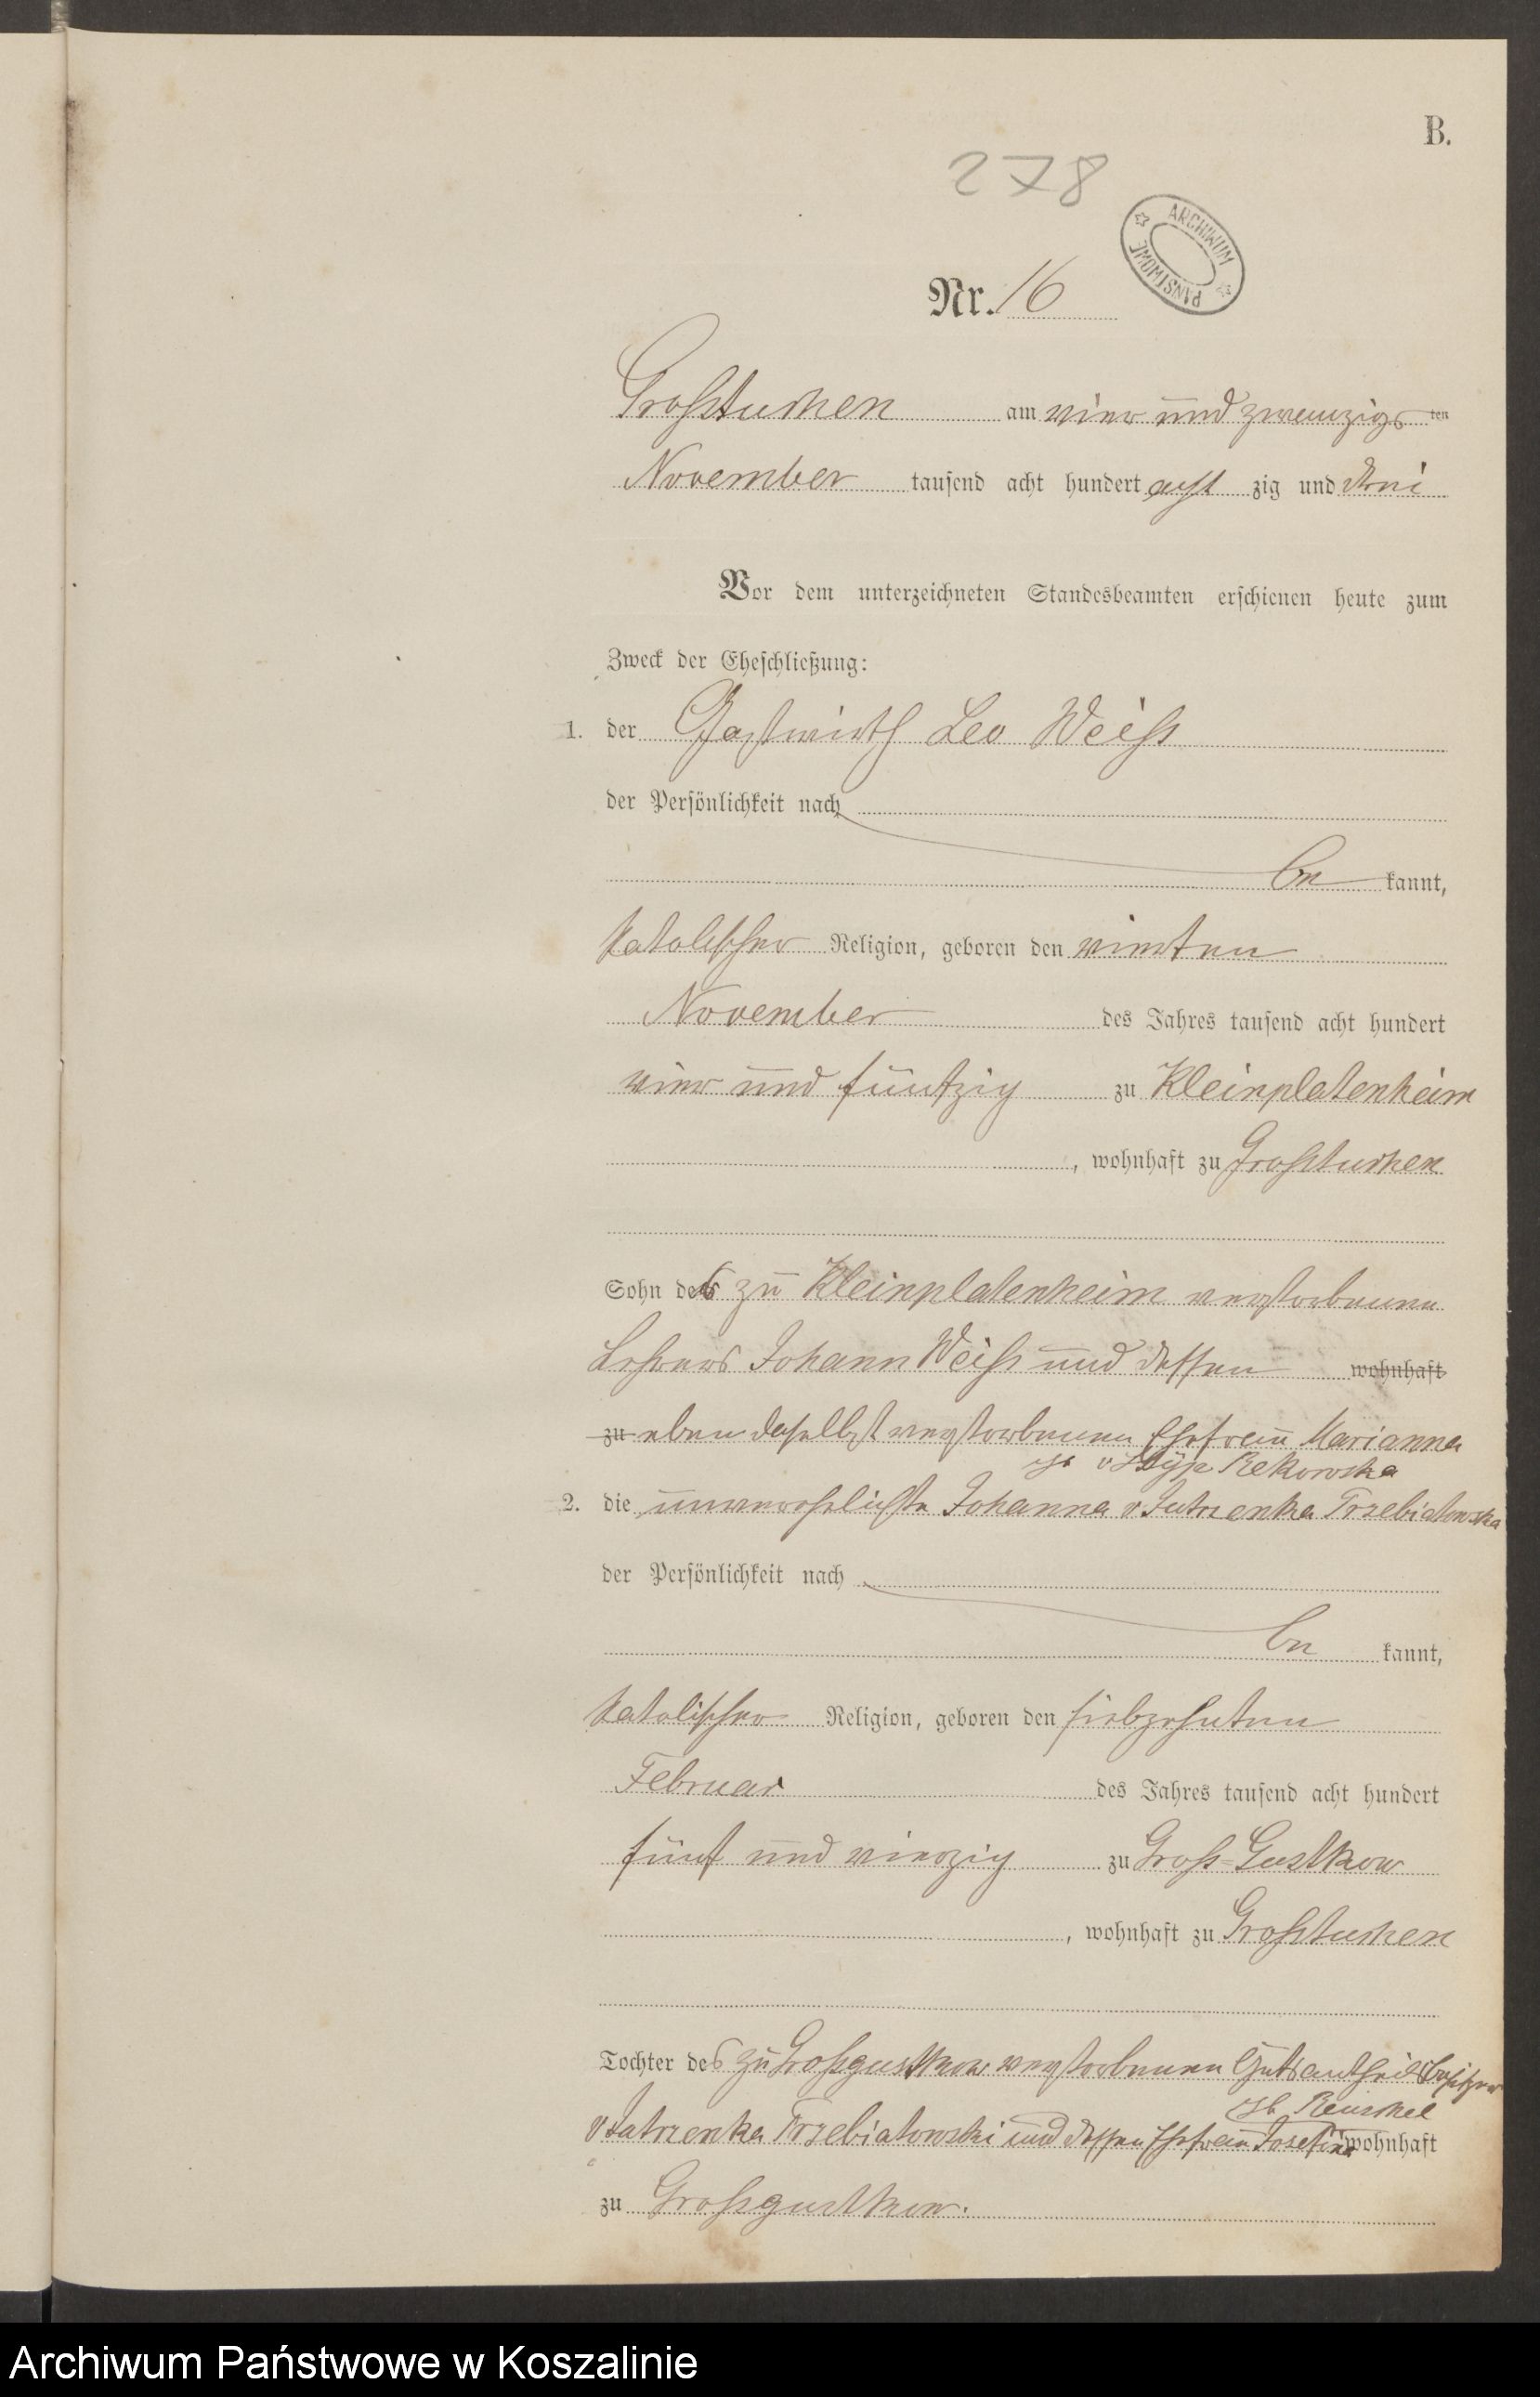 B.
278
ARCHIWUM PAŃSTWOWE
Nr. 16
Großtuchen am vier und zwanzigs ten
November tausend acht hundert acht zig und drei
Vor dem unterzeichneten Standesbeamten erschienen heute zum
Zweck der Eheschließung:
1. der Gastwirth Leo Weiß
der Persönlichkeit nach
be kannt,
katolischer Religion, geboren den vierten
November des Jahres tausend acht hundert
vier und fünfzig zu Kleinplatenheim
, wohnhaft zu Großtuchen
Sohn des zu Kleinplatenheim verstorbenen
Lehrers Johann Weiß und dessen wohnhaft
zu eben daselbst verstorbenen Ehefrau Marianna
Rekowska
2. die unverehelichte Johanna v Jutrzenka Trzebiatowska
der Persönlichkeit nach
be kannt,
katolischer Religion, geboren den siebzehnten
Februar des Jahres tausend acht hundert
fünf und vierzig zu Groß-Gustkow
, wohnhaft zu Großtuchen
Tochter des zu Großgustkow verstorbenen Gutsantheilsbesitzer
gb.
v Jutrzenka Trzebiatowski und dessen Ehefrau Josefina wohnhaft
zu Großgustkow.
Archiwum Państwowe w Koszalinie